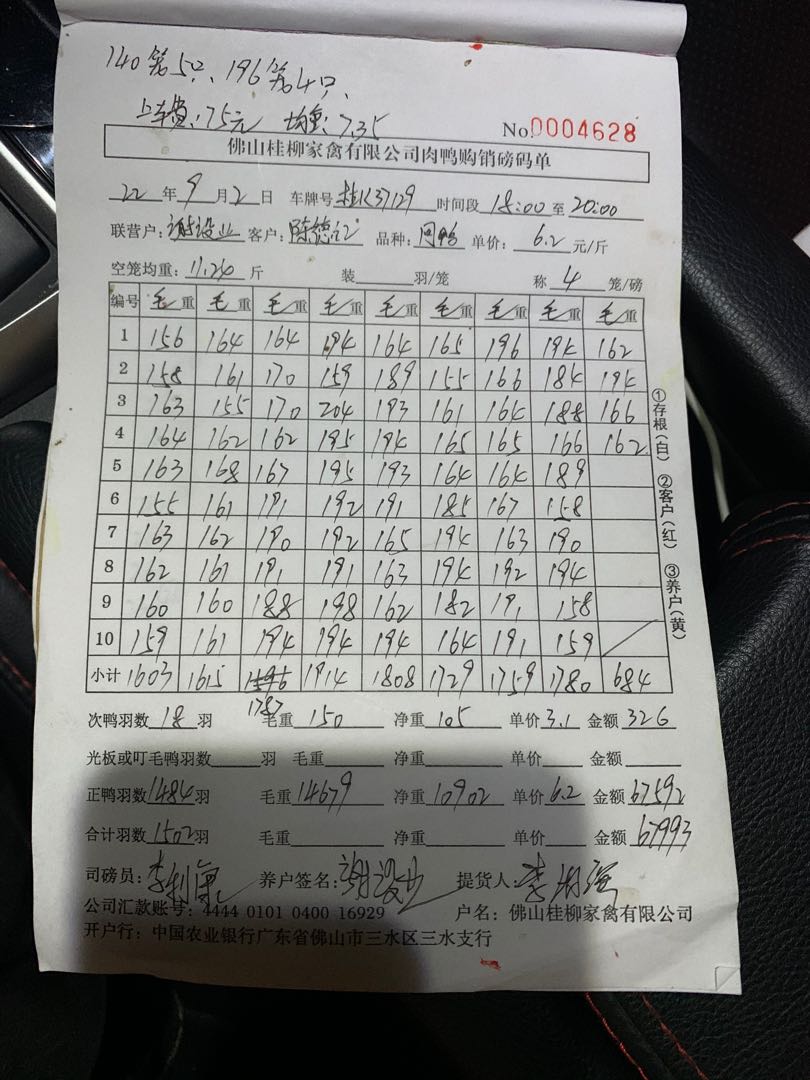 140笼5只、196笼4只、
上车费:75元 均重:7.35
No.0004628
佛山桂柳家禽有限公司肉鸭购销磅码单
22年9月2日 车牌号桂K37129 时间段18:00至20:00
联营户:谢设业 客户:陈德 品种: 单价:6.2元/斤
空笼均重:11.24斤 装 羽/笼 称4笼/磅
编号 毛重 毛重 毛重 毛重 毛重 毛重 毛重 毛重 毛重
1 156 164 164 194 164 165 196 194 162
2 158 161 170 159 189 155 166 184 194
3 163 155 170 204 193 161 164 188 166
4 164 162 162 195 194 165 165 166 162
5 163 168 167 195 193 164 164 189
6 155 161 191 192 191 185 167 158
7 163 162 190 192 165 194 163 190
8 162 161 191 191 163 194 192 194
9 160 160 188 198 162 182 191 158
10 159 161 194 194 194 164 191 159
小计 1603 1615 1787 1914 1808 1729 1759 1780 684
次鸭羽数18羽 毛重150 净重105 单价3.1 金额326
光板或叮毛鸭羽数 羽 毛重 净重 单价 金额
正鸭羽数1484羽 毛重14679 净重10902 单价6.2 金额67592
合计羽数1502羽 毛重 净重 单价 金额67993
司磅员:李 养户签名:谢设业 提货人:李
公司汇款账号:4444 0101 0400 16929 户名:佛山桂柳家禽有限公司
开户行:中国农业银行广东省佛山市三水区三水支行
①存根(白) ②客户(红) ③养户(黄)